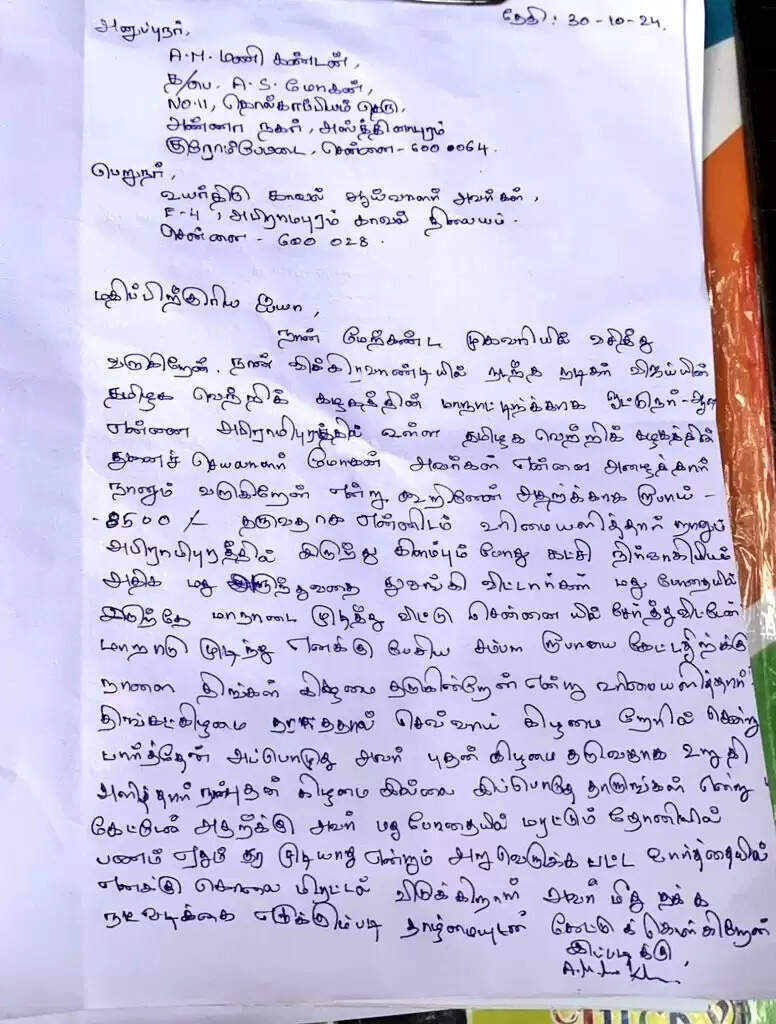 தேதி: 30-10-24.
அனுப்புநர்,
A.M. மணி கண்டன்,
த/பெ. A.S. மோகன்,
No.11, தொல்காப்பியம் தெரு,
அண்ணா நகர், அஸ்தினாபுரம்
குரோம்பேட்டை, சென்னை - 600 0064.
பெறுநர்,
உயர்திரு காவல் ஆய்வாளர் அவர்கள்,
E-4, அபிராமபுரம் காவல் நிலையம்.
சென்னை - 600 028.
மதிப்பிற்குரிய ஐயா,
நான் மேற்கண்ட முகவரியில் வசித்து
வருகிறேன். நான் விக்கிரவாண்டியில் நடந்த நடிகர் விஜயின்
தமிழக வெற்றிக் கழகத்தின் மாநாட்டிற்க்காக ஓட்டுநர்-ஆன
என்னை அபிராமிபுரத்தில் உள்ள தமிழக வெற்றிக் கழகத்தின்
துணைச் செயலாளர் மோகன் அவர்கள் என்னை அழைத்தார்
நானும் வருகிறேன் என்று கூறினேன் அதற்க்காக ரூபாய் -
- 8500/- தருவதாக என்னிடம் உரிமையளித்தார் நானும்
அபிராமிபுரத்தில் இருந்து கிளம்பும் போது கட்சி நிர்வாகியும்
அதிக மது அருந்துவதை துவங்கி விட்டார்கள் மது போதையில்
இருந்தே மாநாடை முடித்து விட்டு சென்னை யில் சேர்த்துவிட்டேன்
மாநாடு முடிந்து எனக்கு பேசிய சம்பள ரூபாயை கேட்டதிற்க்கு
நாளை திங்கள் கிழமை தருகின்றேன் என்று உரிமையளித்தார்.
திங்கட்கிழமை தராததால் செவ்வாய் கிழமை நேரில் சென்று
பார்த்தேன் அப்பொழுது அவர் புதன் கிழமை தருவதாக உறுதி
அளித்தார் நான் புதன் கிழமை இல்லை இப்பொழுது தாருங்கள் என்று
கேட்டேன் அதற்க்கு அவர் மது போதையில் மிரட்டும் தோணியில்
பணம் ஏதும் தர முடியாது என்றும் அறுவெறுக்க பட்ட வார்த்தையில்
எனக்கு கொலை மிரட்டல் விடுக்கிறார் அவர் மீது தக்க
நடவடிக்கை எடுக்கும்படி தாழ்மையுடன் கேட்டு க் கொள்கிறேன்
இப்படிக்கு,